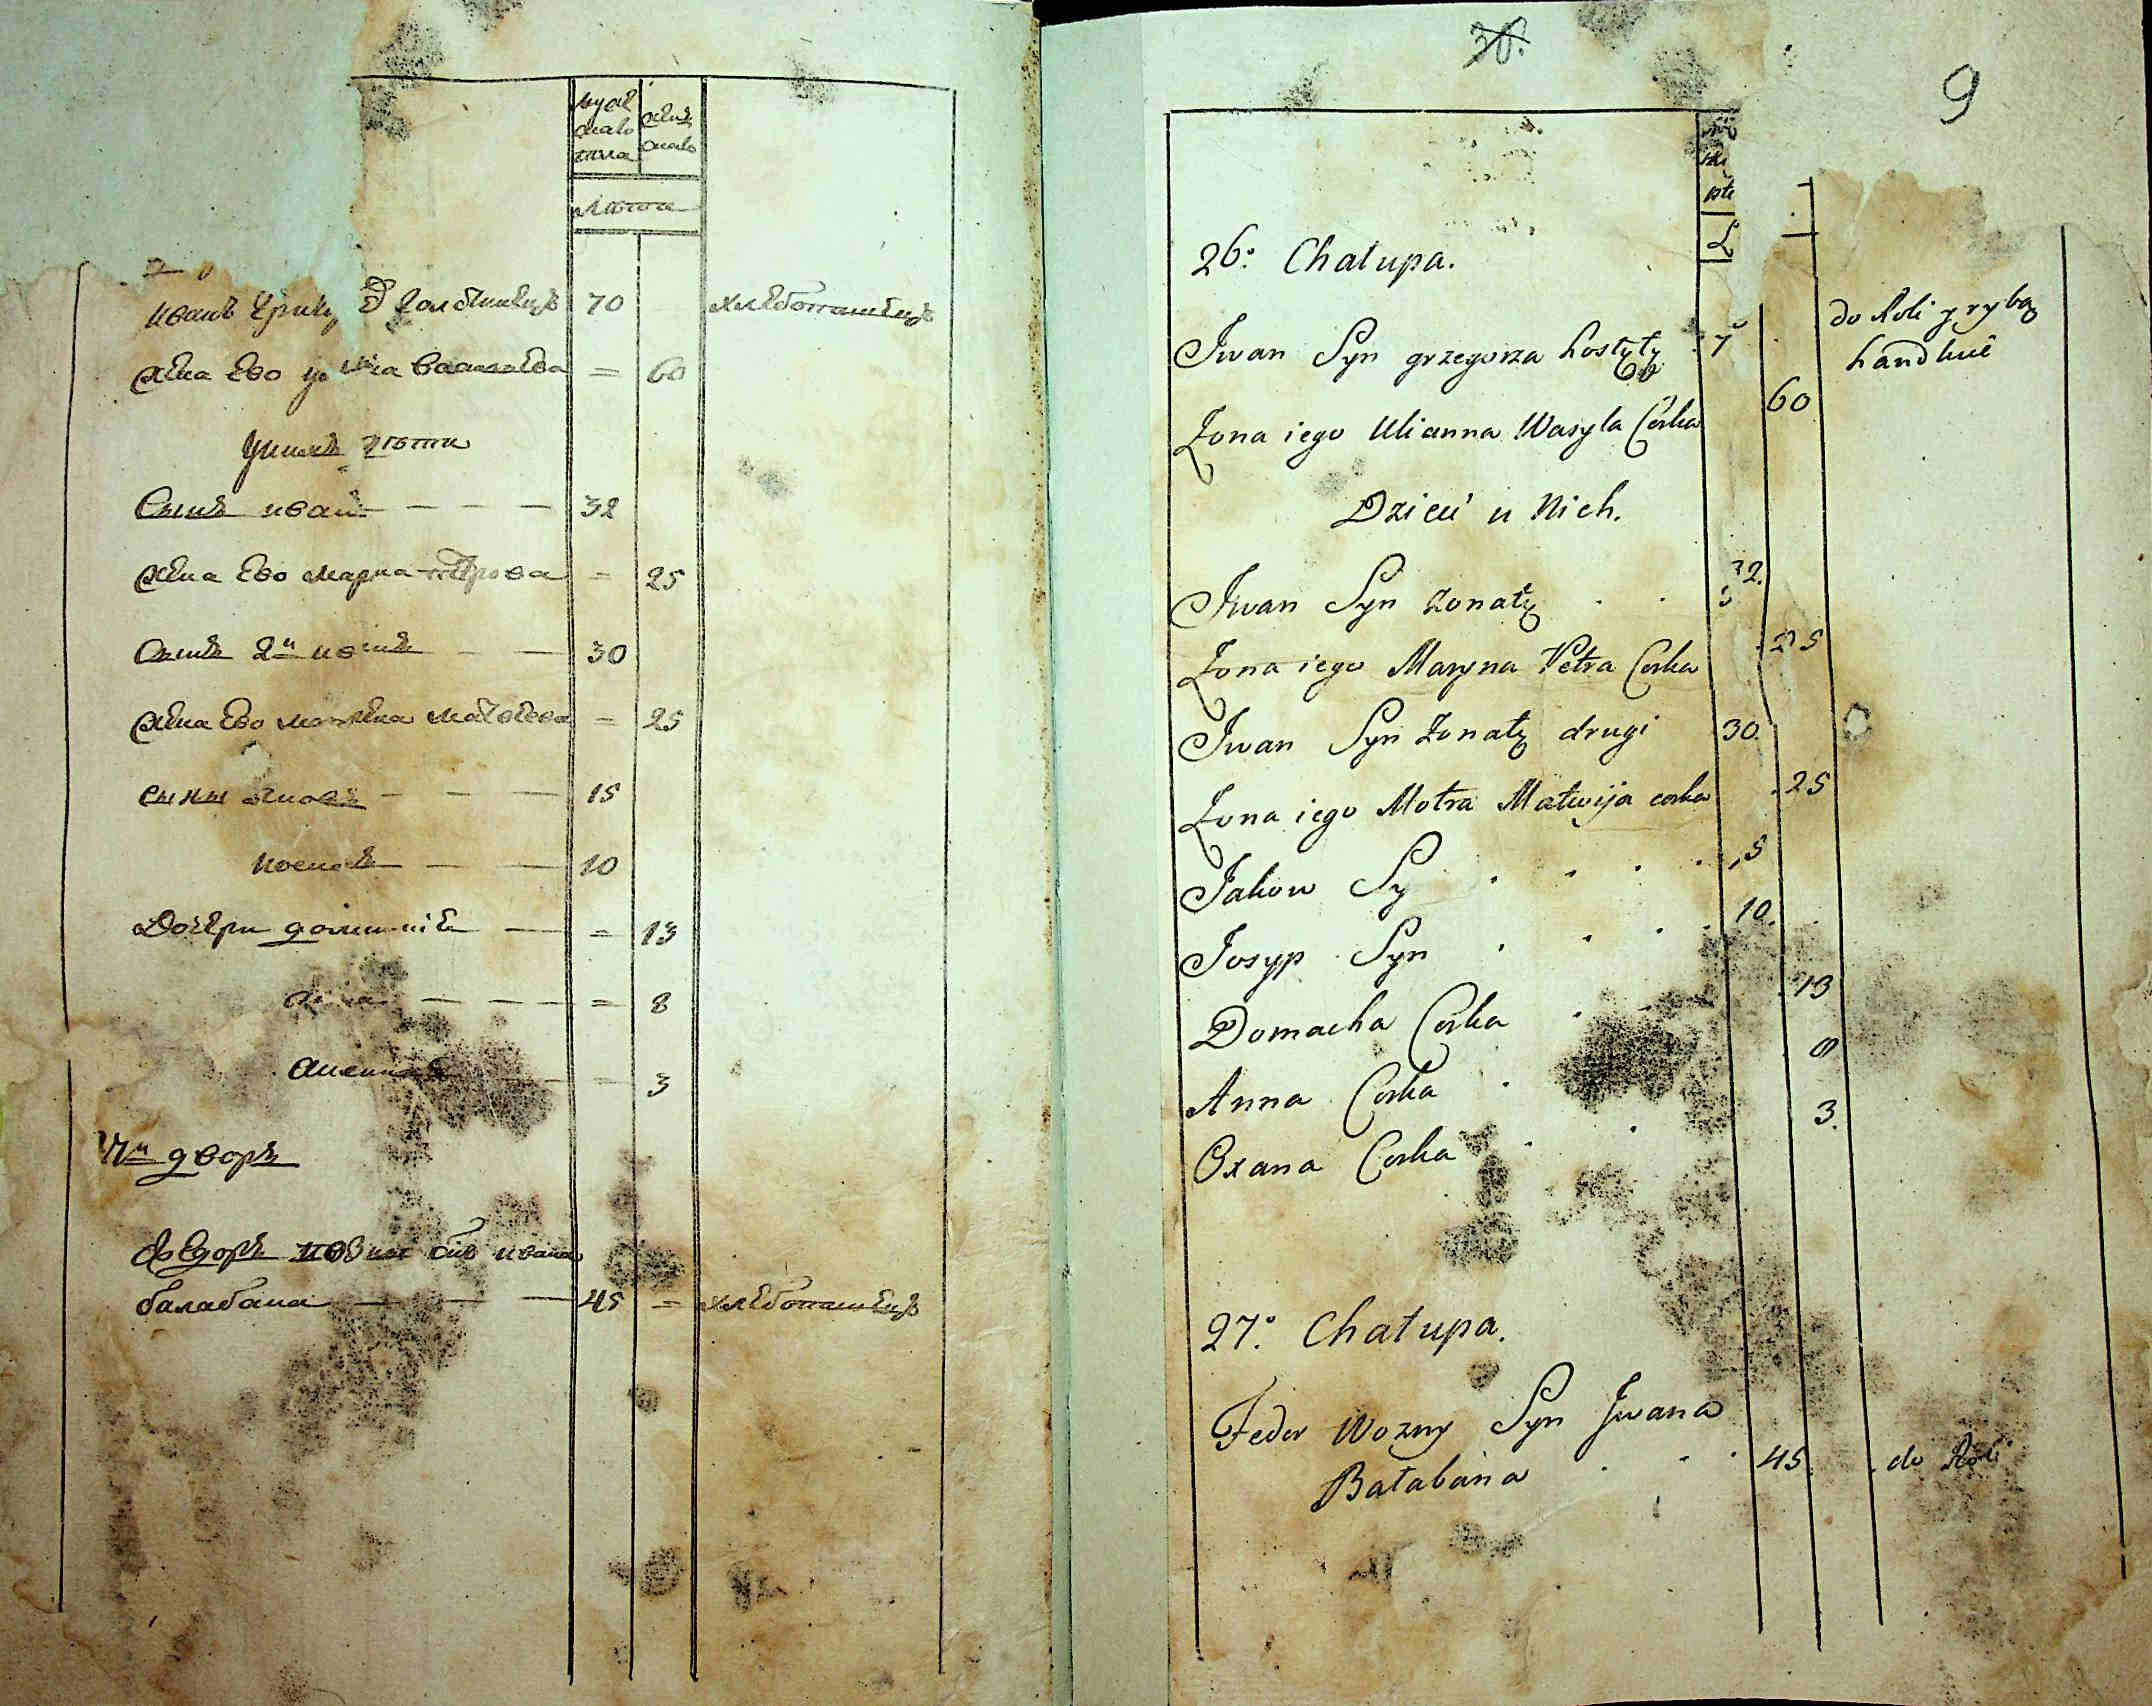 мужеска
пола
женска
лета
Иванъ Гриц
70
хлебопашецъ
жена Ево Васильева
= 60
У нихъ дети
Сынъ иванъ
32
жена Ево Марна Петрова
= 25
Сынъ 2й иванъ
30
жена Ево Мотрена Матвеева
= 25
Сыны яковъ
15
иосифъ
10
Дочери домникия
= 13
анна
= 8
3
дворъ
Федоръ возный сынъ ивана
балабана
45 = хлебопашецъ
30.
9
26° Chałupa.
Iwan Syn grzegorza
7
do Roli y rybą
handluie
Zona iego Ulianna Wasyla Corka
60
Dzieci u Nich.
Iwan Syn żonaty
32.
Zona iego Maryna Petra Corka
25
Iwan Syn żonaty drugi
30
Zona iego Motra Matwija corka
25
Jakow Sy
15
Josyp Syn
10.
Domacha Corka
13
Anna Corka
8
Oxana Corka
3.
27° Chałupa.
Fedor Wozny Syn Iwana
Bałabana
45. do Roli